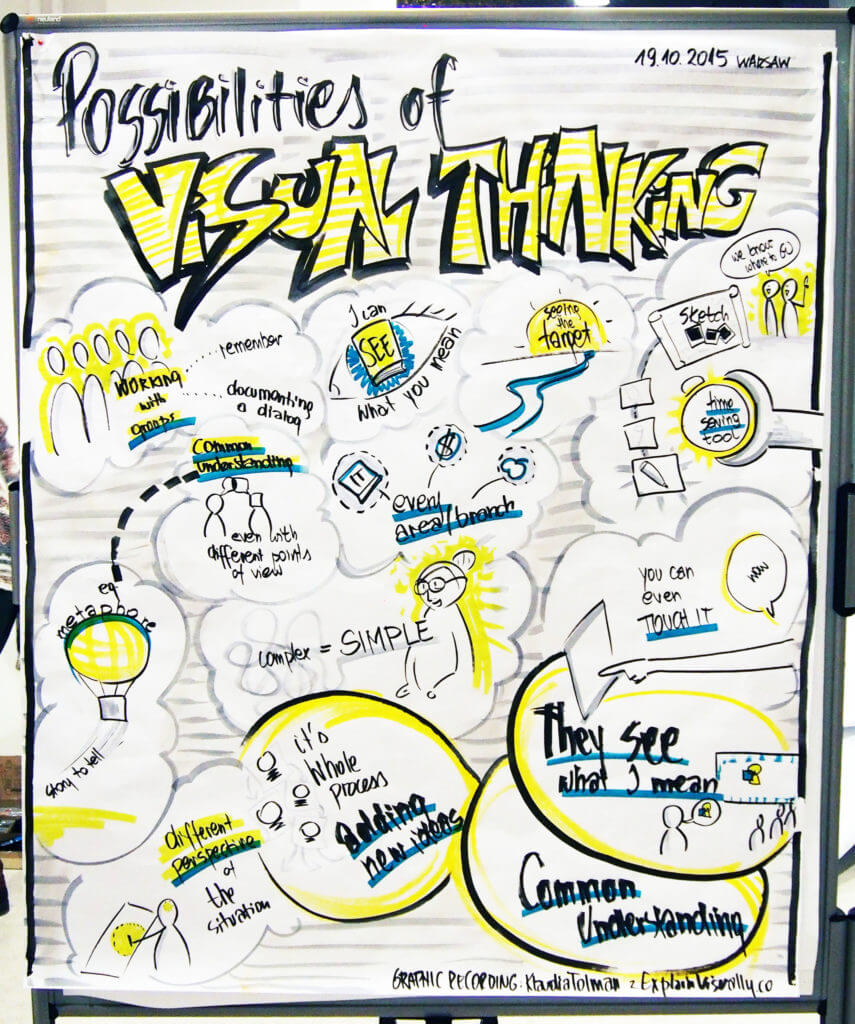 neuland
19.10.2015 WARSAW
Possibilities of
VISUAL THINKING
we know
where to GO
sketch
time
saving
tool
seeing
the
target
I can
SEE
what you mean
WORKING
with
groups
remember
documenting
a dialog
common
understanding
even with
different points
of view
IT
$
every
area/branch
eg
metaphore
story to tell
complex = SIMPLE
you can
even
TOUCH IT
wow
They see
what I mean
it's
whole
process
adding
new ideas
Common
Understanding
different
perspective
of
the
situation
GRAPHIC RECORDING: Klaudia Tolman z ExplainVisually.co